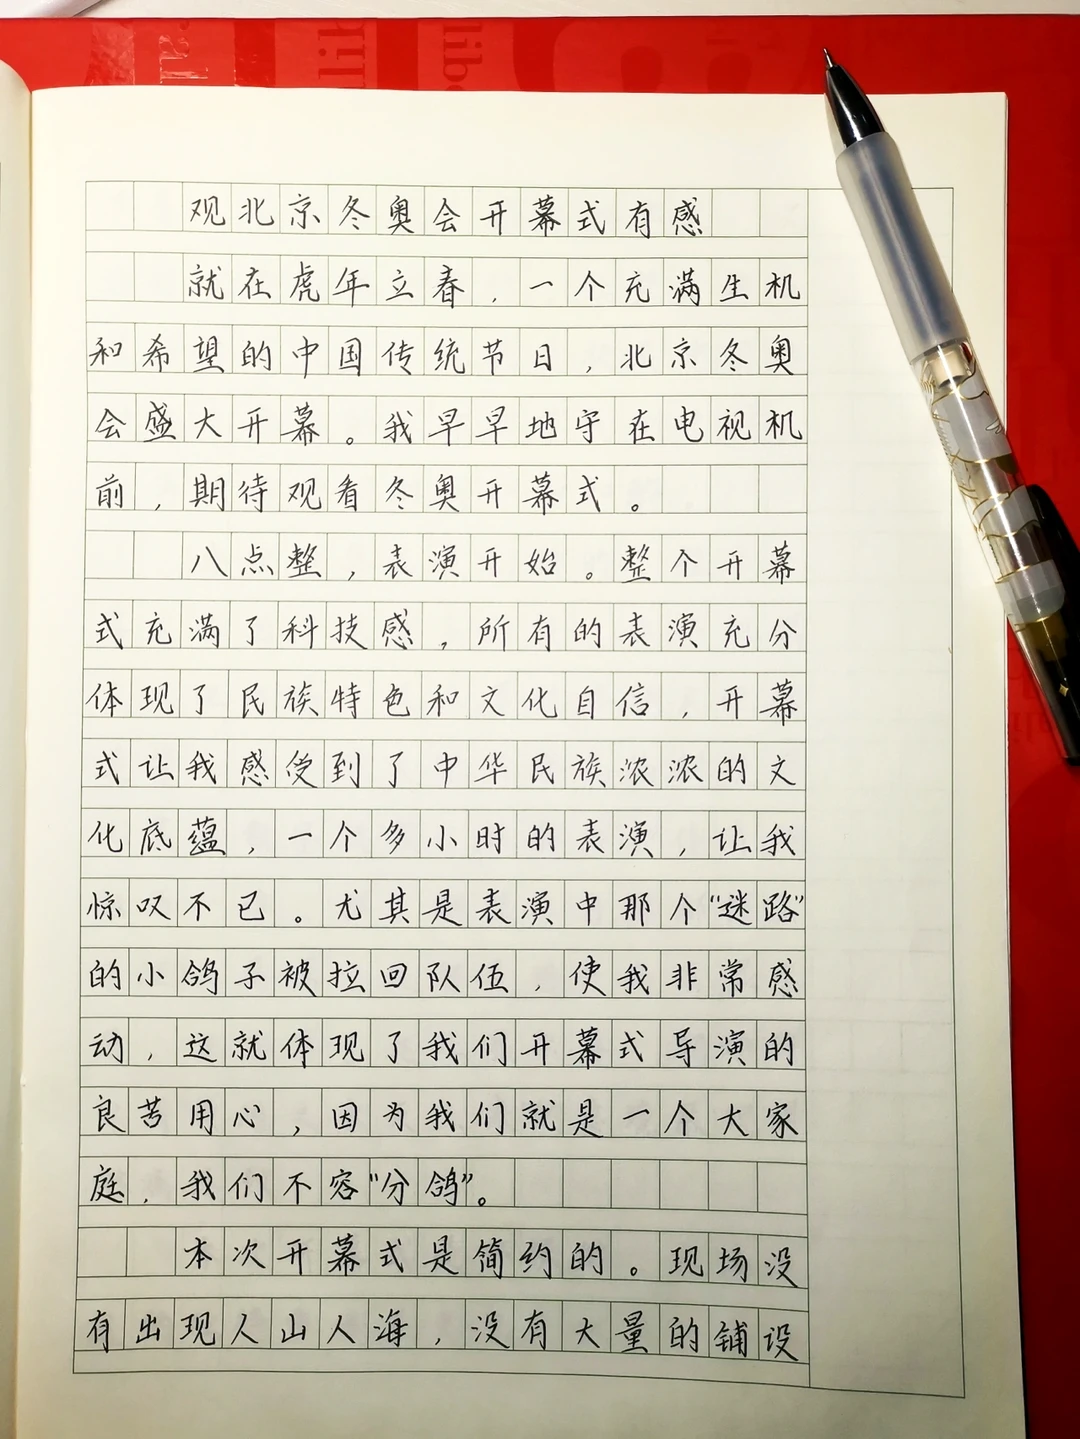 观北京冬奥会开幕式有感
就在虎年立春，一个充满生机
和希望的中国传统节日，北京冬奥
会盛大开幕。我早早地守在电视机
前，期待观看冬奥开幕式。
八点整，表演开始。整个开幕
式充满了科技感，所有的表演充分
体现了民族特色和文化自信，开幕
式让我感受到了中华民族浓浓的文
化底蕴，一个多小时的表演，让我
惊叹不已。尤其是表演中那个“迷路”
的小鸽子被拉回队伍，使我非常感
动，这就体现了我们开幕式导演的
良苦用心，因为我们就是一个大家
庭，我们不容“分鸽”。
本次开幕式是简约的。现场没
有出现人山人海，没有大量的铺设